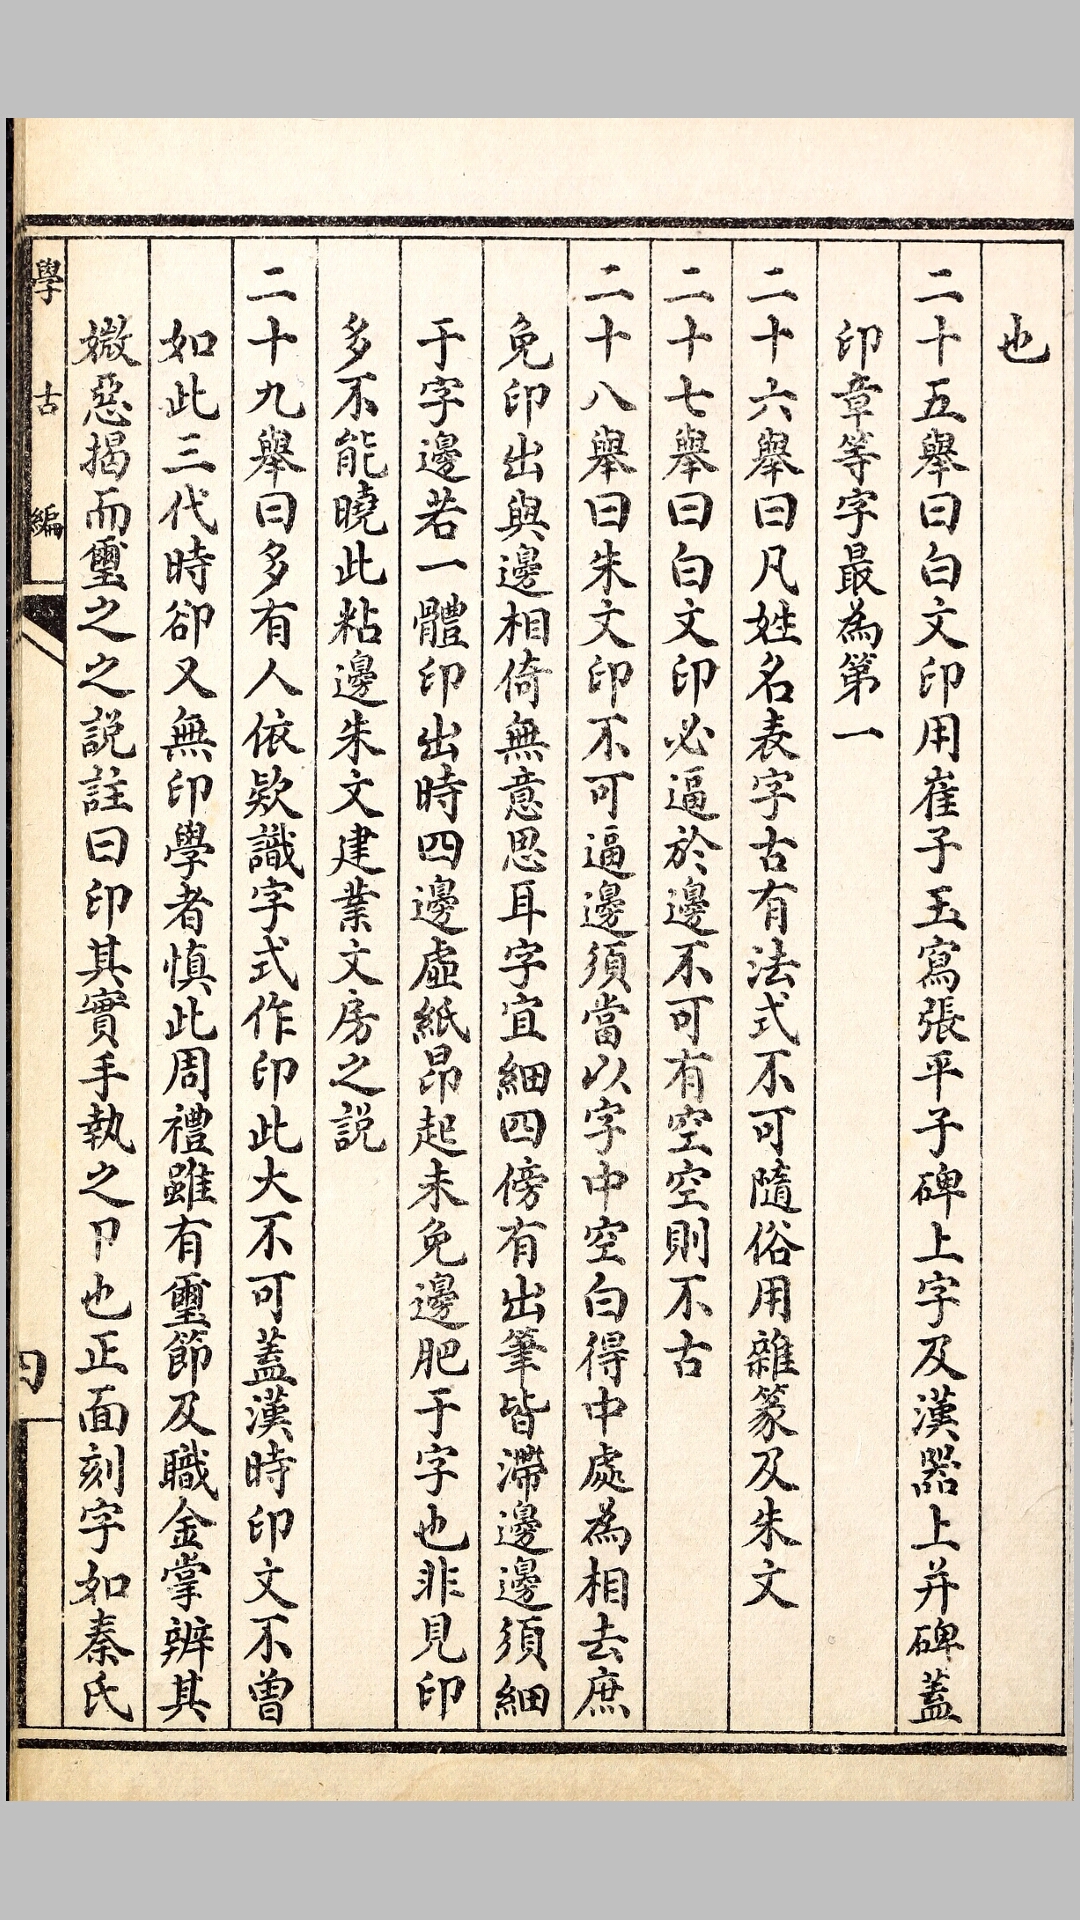 也
二十五舉曰白文印用崔子玉寫張平子碑上字及漢器上并碑蓋
印章等字最為第一
二十六舉曰凡姓名表字古有法式不可隨俗用雜篆及朱文
二十七舉曰白文印必逼於邊不可有空空則不古
二十八舉曰朱文印不可逼邊須當以字中空白得中處為相去庶
免印出與邊相倚無意思耳字宜細四傍有出筆皆滯邊邊須細
于字邊若一體印出時四邊虛紙昂起未免邊肥于字也非見印
多不能曉此粘邊朱文建業文房之説
二十九舉曰多有人依欵識字式作印此大不可蓋漢時印文不曾
如此三代時卻又無印學者慎此周禮雖有璽節及職金掌辨其
媺惡揭而璽之之説註曰印其實手執之卪也正面刻字如秦氏
學古編
四